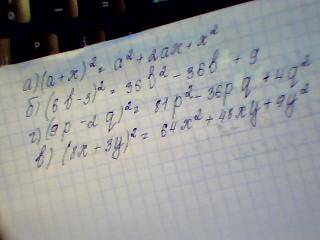 а) (a+x)² = a² + 2ax + x²
б) (6b-3)² = 36b² - 36b + 9
г) (9p-2q)² = 81p² - 36pq + 4q²
в) (8x+3y)² = 64x² + 48xy + 9y²